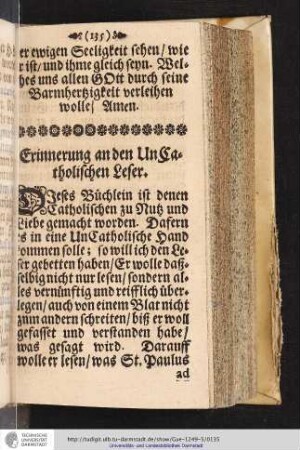 (135)
er ewigen Seeligkeit sehen/ wie
r ist/ und ihme gleich seyn. Wel-
hes uns allen GOtt durch seine
Barmhertzigkelt verleihen
wolle/ Amen.
Erinnerung an den UnCa-
tholischen Leser.
Dieses Büchlein ist denen
Catholischen zu Nutz und
Liebe gemacht worden. Dafern
es in eine UnCatholische Hand
ommen solle; so will ich den Le-
ser gebetten haben/ Er wolle daß-
selbig nicht nur lesen/ sondern al-
les vernünfftig und reifflich über-
legen/ auch von einem Blat nicht
zum andern schreiten/ biß er woll
gefasset und verstanden habe/
was gesagt wird. Darauff
wolle er lesen/ was St. Paulus
ad
TECHNISCHE
UNIVERSITÄT
DARMSTADT
http://tudigit.ulb.tu-darmstadt.de/show/Gue-1249-5/0135
Universitäts- und Landesbibliothek Darmstadt